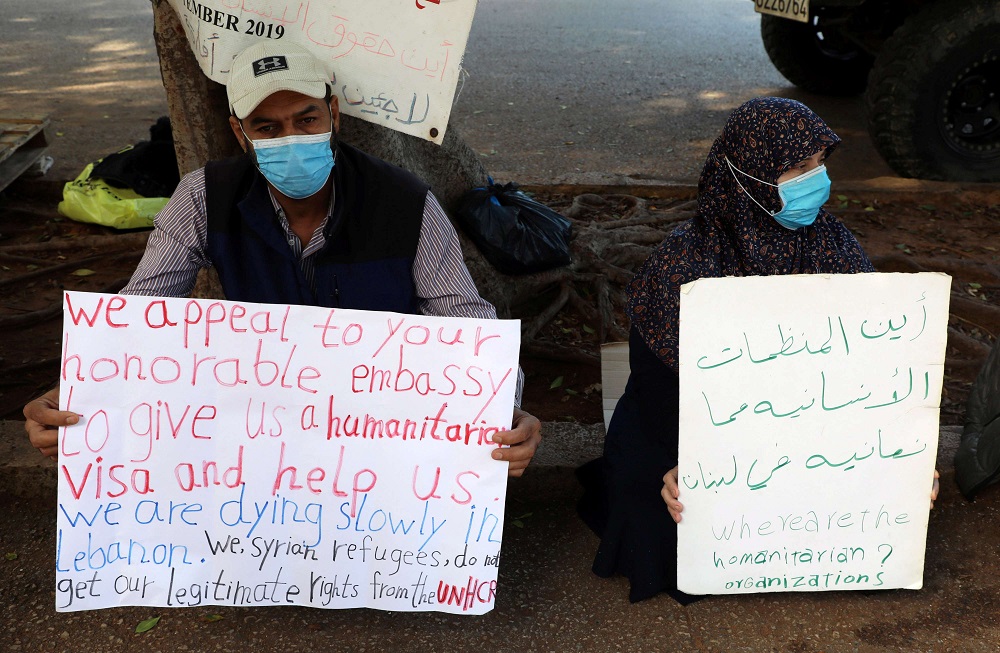 TEMBER 2019
أين حقوق
لاجئين
We appeal to your
honorable embassy
to give us a humanitarian
visa and help us.
We are dying slowly in
Lebanon. We, syrian refugees, do not
get our legitimate rights from the UNHCR
أين المنظمات
الأنسانيه مما
نعانيه في لبنان
where are the
Humanitarian ?
organizations